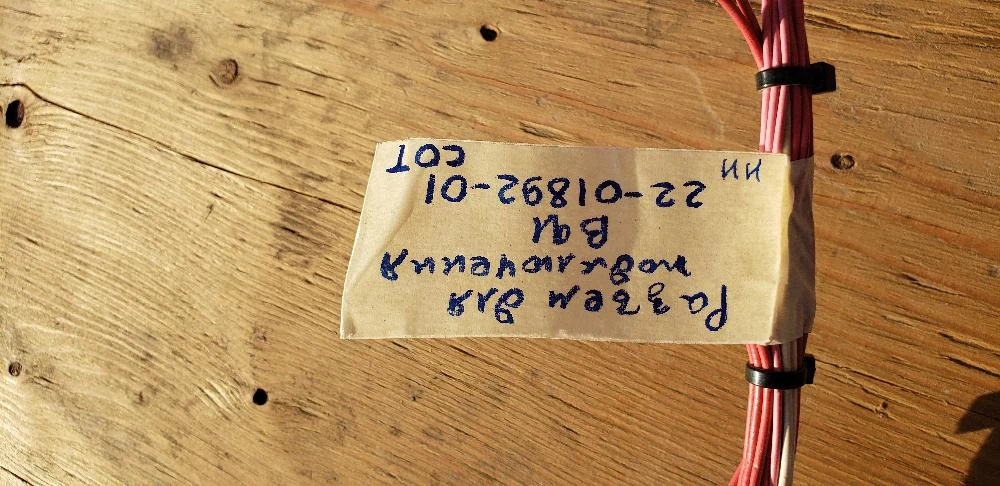 Разъем для
подключения
22-01892-01
НН СОТ